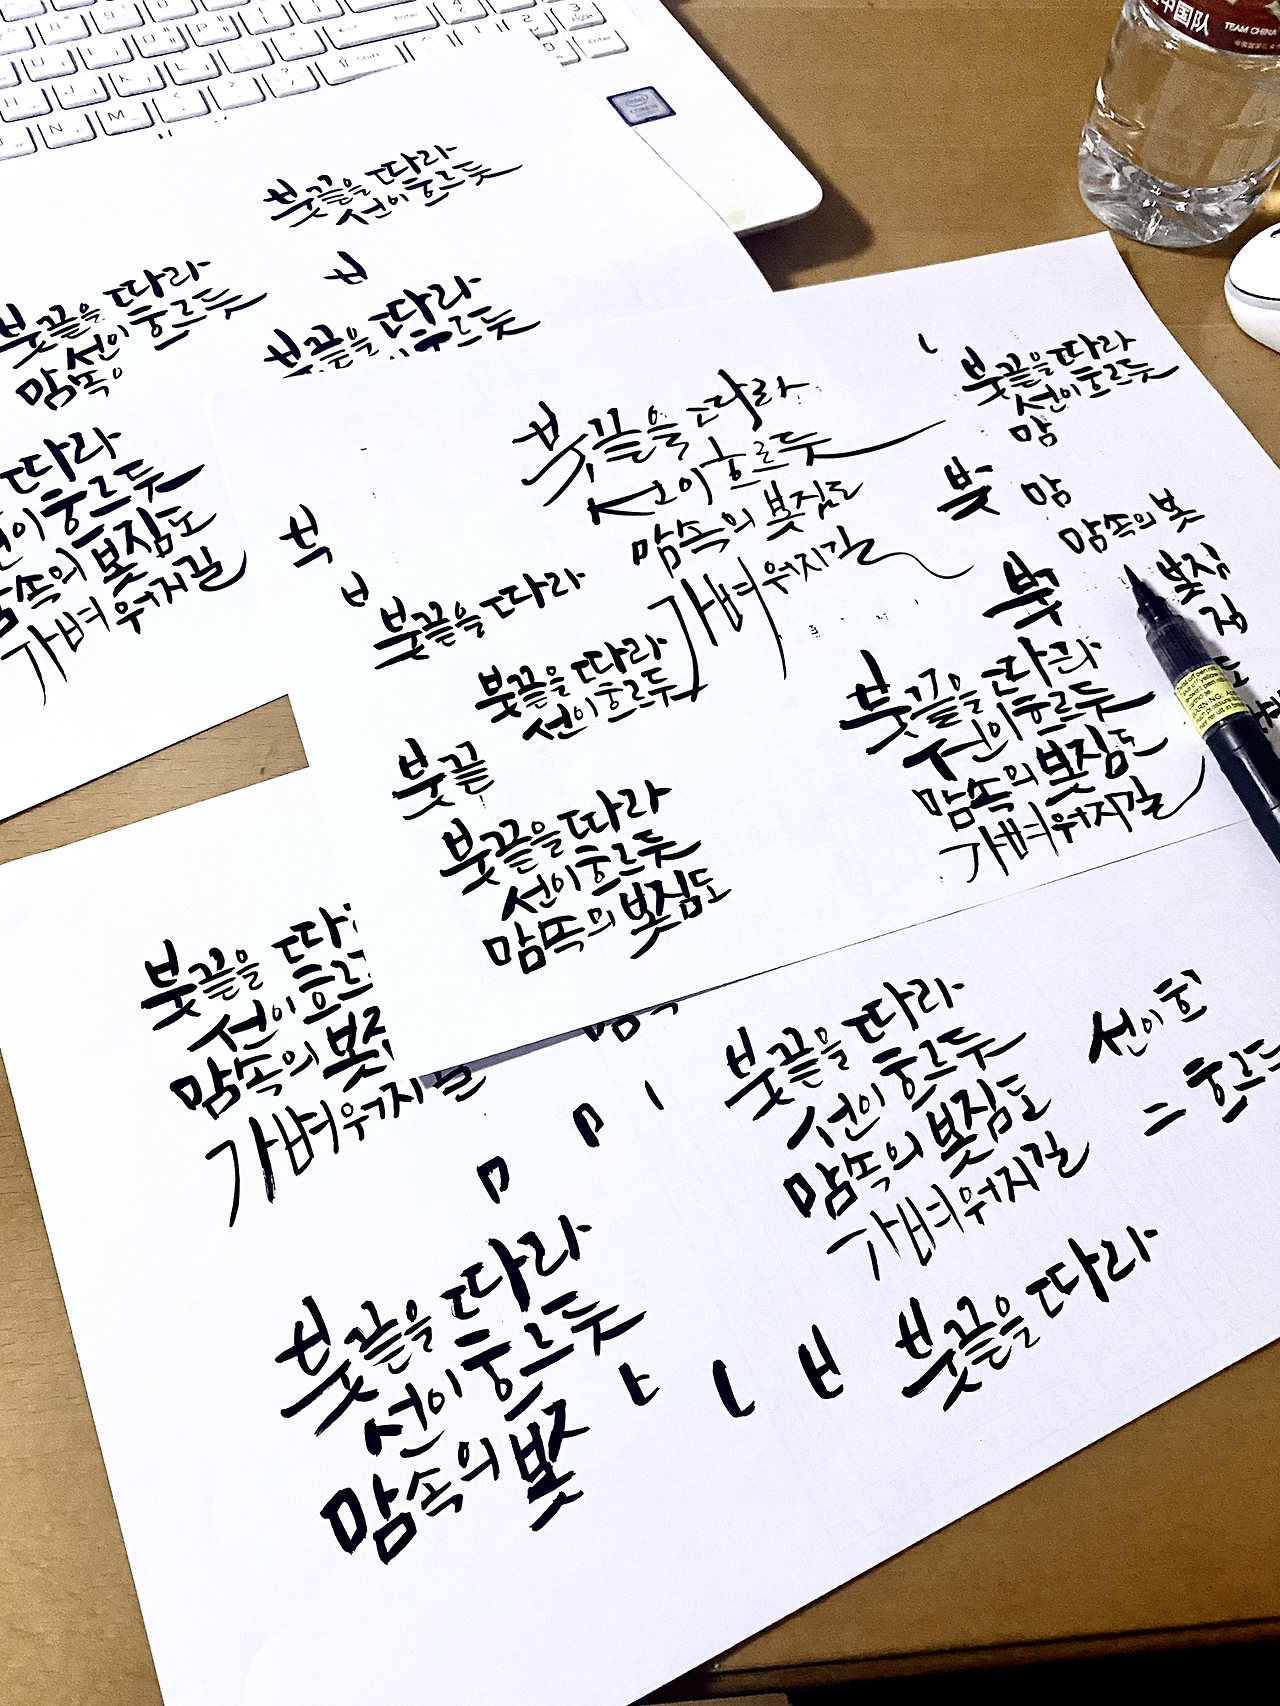 中国队
TEAM CHINA
Enter
Shift
intel
붓끝을 따라
선이 흐르듯
ㅂ
붓끝을 따라
선이 흐르듯
맘속
붓끝을 따라
흐르듯
따라
선이 흐르듯
맘속의 봇짐도
가벼워지길
붓끝을 따라
선이 흐르듯
맘속의 봇짐도
가벼워지길
붓끝을 따라
선이 흐르듯
맘
붓
맘
맘속의 봇
봇짐
짐
도
붓
부
ㅂ
붓끝을 따라
붓끝을 따라
선이 흐르듯
붓끝
붓끝을 따라
선이 흐르듯
맘뜩의 봇짐도
붓끝을 따라
선이 흐르듯
맘속의 봇짐도
가벼워지길
붓끝을 따
선이 흐르
맘속의 봇
가벼워지길
붓끝을 따라
선이 흐르듯
맘속의 봇짐도
가벼워지길
선이 흐
= 흐르듯
ㅁ
ㅁ
붓끝을 따라
선이 흐르듯
맘속의 봇
ㅂ
붓끝을 따라